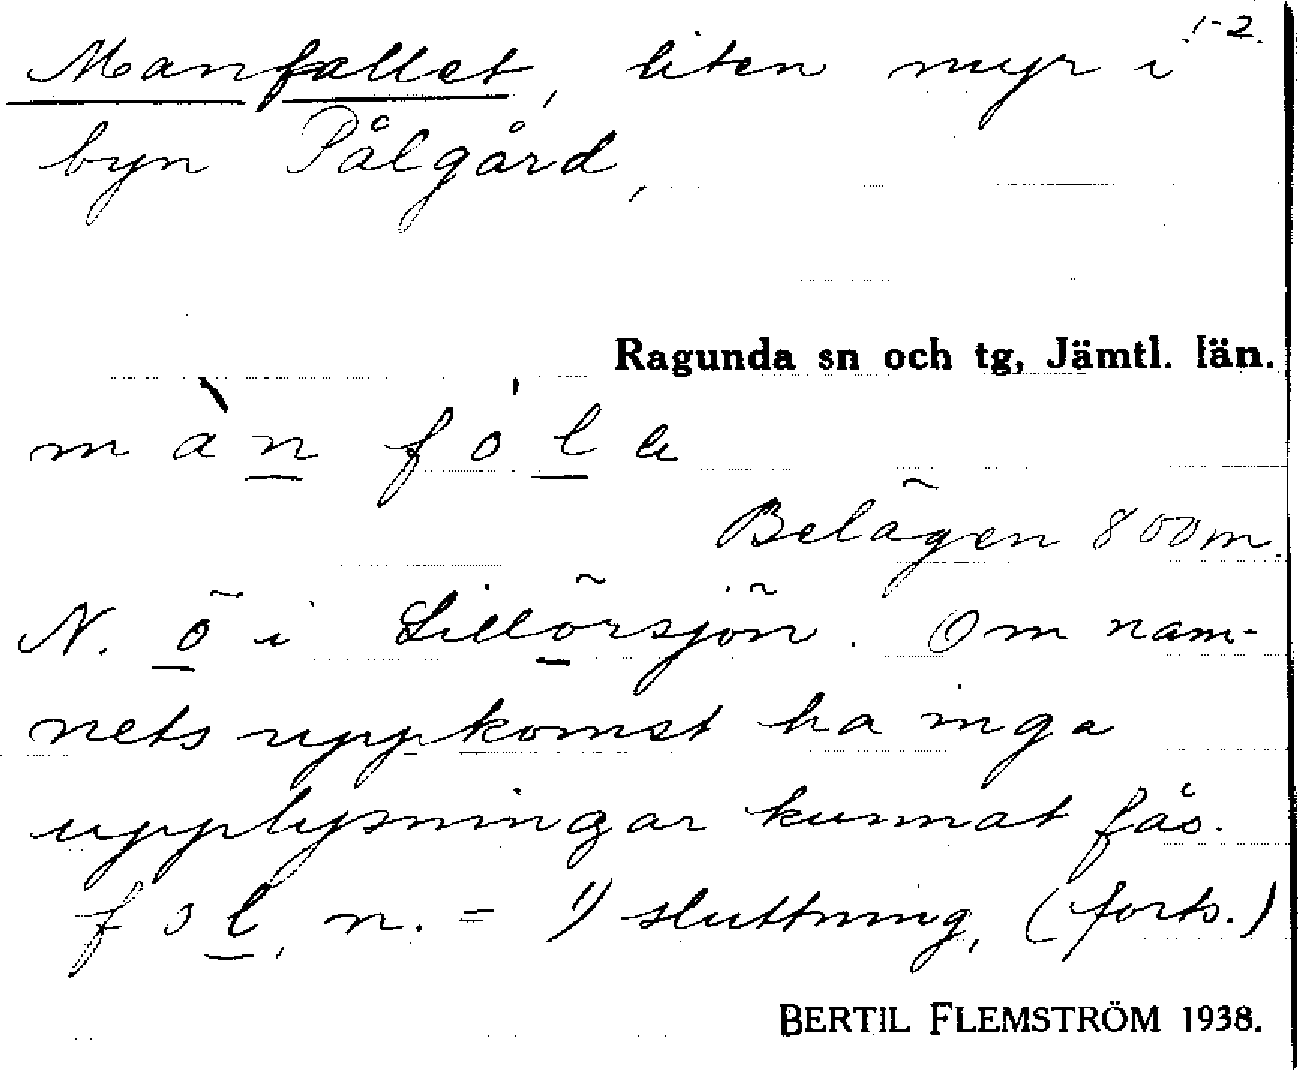 1-2.
Manfallet, liten myr i
byn Pålgård,
Ragunda sn och tg, Jämtl. län.
Belägen 800 m.
N. ö i Lillörsjön. Om nam-
nets uppkomst ha inga
upplysningar kunnat fås.
n. = 1) sluttning, (forts.)
BERTIL FLEMSTRÖM 1938.